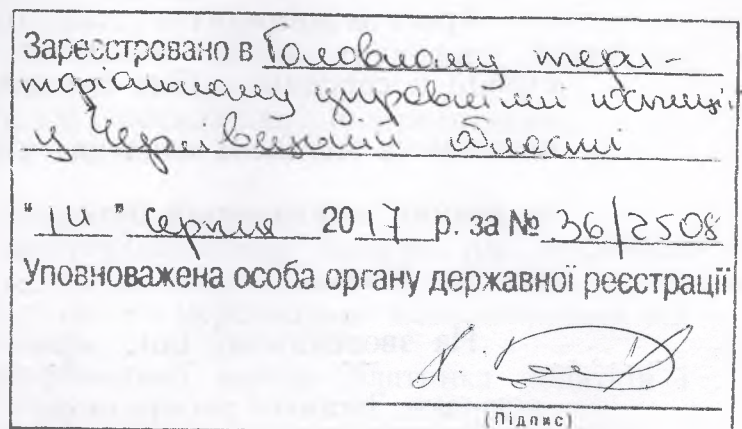 Зареєстровано в Головному тери-
торіальному управлінні юстиції
у Чернівецькій області
" 14 " серпня 2017 р. за № 36/2508
Уповноважена особа органу державної реєстрації
(Підпис)